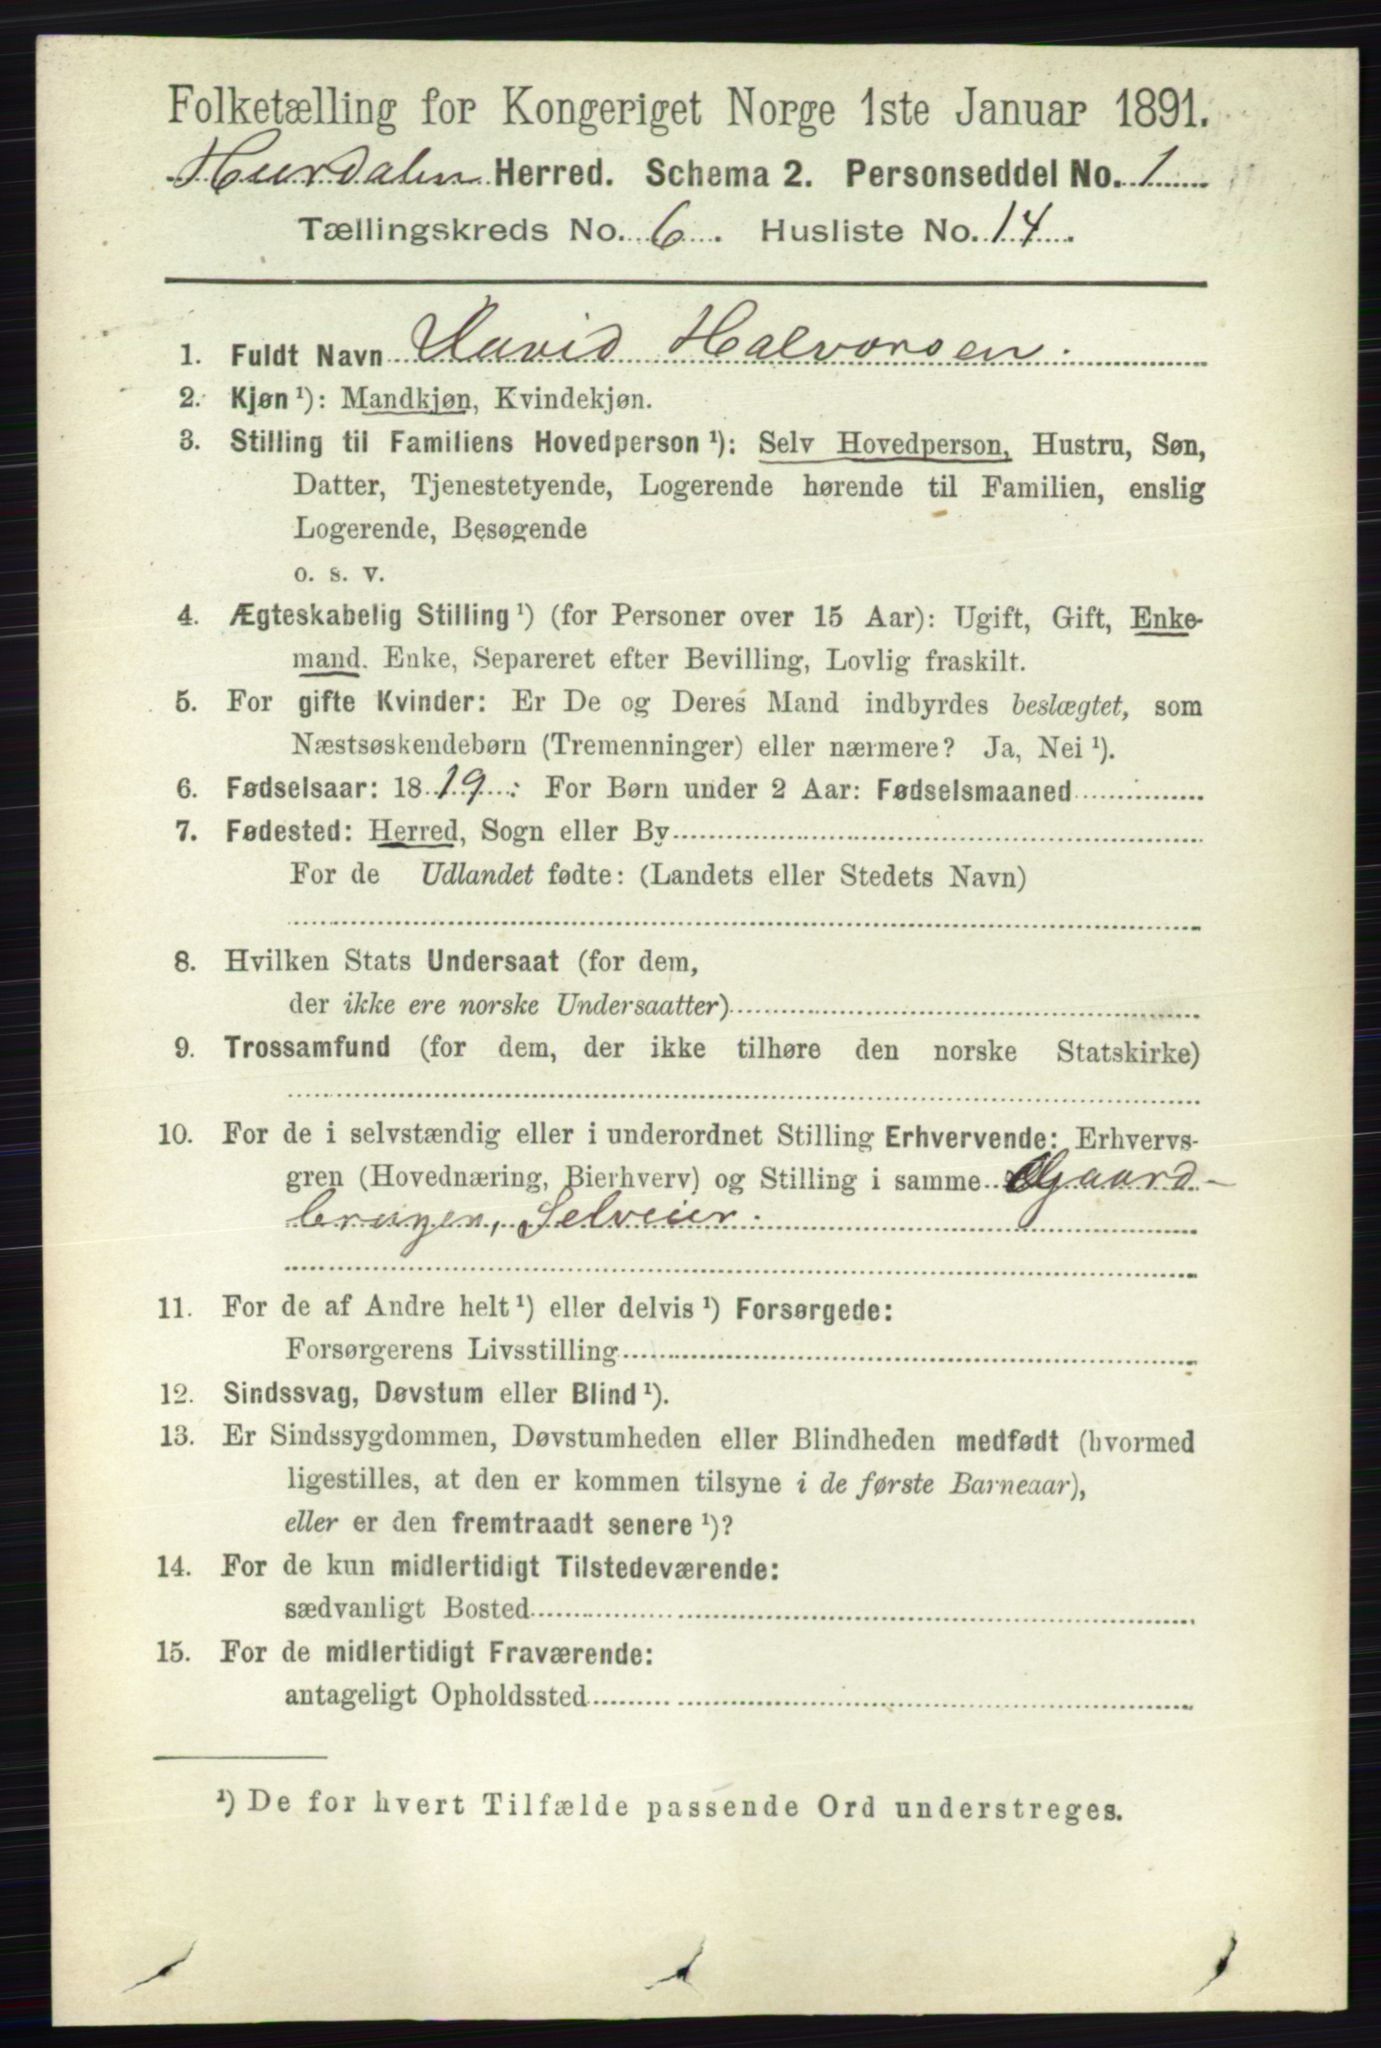 Folketælling for Kongeriget Norge 1ste Januar 1891.
Hurdalen Herred. Schema 2. Personseddel No. 1
Tællingskreds No. 6. Husliste No. 14.
1. Fuldt Navn David Halvorsen.
2. Kjøn ¹): Mandkjøn, Kvindekjøn.
3. Stilling til Familiens Hovedperson ¹): Selv Hovedperson, Hustru, Søn,
Datter, Tjenestetyende, Logerende hørende til Familien, enslig
Logerende, Besøgende
o. s. v.
4. Ægteskabelig Stilling ¹) (for Personer over 15 Aar): Ugift, Gift, Enke-
mand, Enke, Separeret efter Bevilling, Lovlig fraskilt.
5. For gifte Kvinder: Er De og Deres Mand indbyrdes beslægtet, som
Næstsøskendebørn (Tremenninger) eller nærmere? Ja, Nei ¹).
6. Fødselsaar: 1819: For Børn under 2 Aar: Fødselsmaaned
7. Fødested: Herred, Sogn eller By
For de Udlandet fødte: (Landets eller Stedets Navn)
8. Hvilken Stats Undersaat (for dem,
der ikke ere norske Undersaatter)
9. Trossamfund (for dem, der ikke tilhøre den norske Statskirke)
10. For de i selvstændig eller i underordnet Stilling Erhvervende: Erhvervs-
gren (Hovednæring, Bierhverv) og Stilling i samme Gaard-
brugen, Selveier.
11. For de af Andre helt ¹) eller delvis ¹) Forsørgede:
Forsørgerens Livsstilling
12. Sindssvag, Døvstum eller Blind ¹).
13. Er Sindssygdommen, Døvstumheden eller Blindheden medfødt (hvormed
ligestilles, at den er kommen tilsyne i de første Barneaar),
eller er den fremtraadt senere ¹)?
14. For de kun midlertidigt Tilstedeværende:
sædvanligt Bosted
15. For de midlertidigt Fraværende:
antageligt Opholdssted
¹) De for hvert Tilfælde passende Ord understreges.